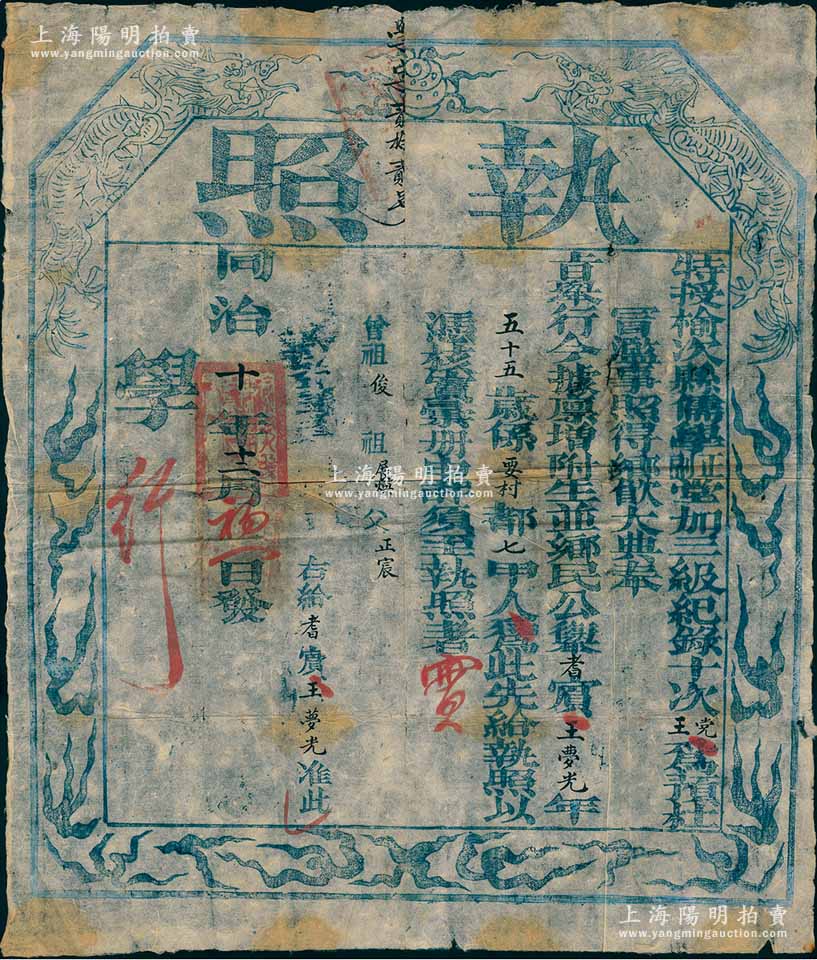 上海陽明拍賣
www.yangmingauction.com
執照
特授榆次縣儒學正堂加三級紀錄十次党王為預杜
冒濫事照得鄉飲大典奉
旨舉行今據廩增附生並鄉民公舉耆賓王夢光年
五十五歲係要村都七甲人為此先給執照以
憑核實彙冊須至執照者
曾祖俊祖父正宸
右給耆賓王夢光准此
同治十年十二月初一日發
學行
實
上海陽明拍賣
www.yangmingauction.com
上海陽明拍賣
www.yangmingauction.com